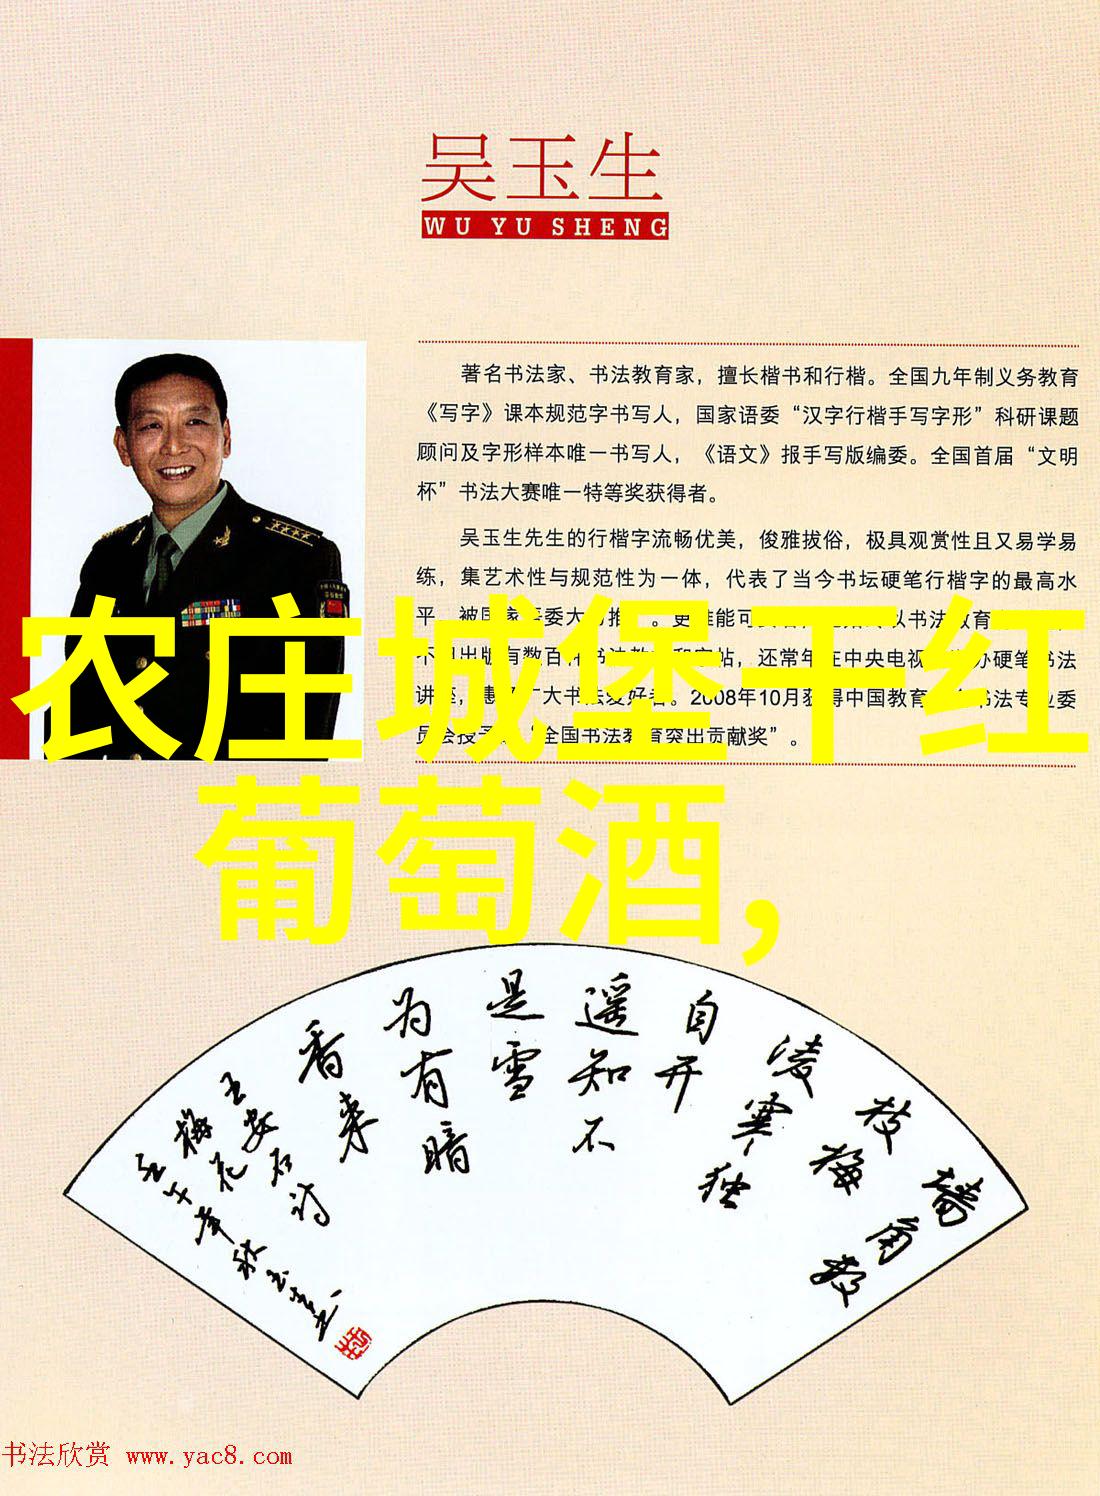 吴玉生
WU YU SHENG
著名书法家、书法教育家，擅长楷书和行楷。全国九年制义务教育
《写字》课本规范字书写人，国家语委“汉字行楷手写字形”科研课题
顾问及字形样本唯一书写人，《语文》报手写版编委。全国首届“文明
杯”书法大赛唯一特等奖获得者。
吴玉生先生的行楷字流畅优美，俊雅拔俗，极具观赏性且又易学易
练，集艺术性与规范性为一体，代表了当今书坛硬笔行楷字的最高水
平，被国家语委大力推。更难能可以书法教育
不出版有数百书法教和字帖，还常年在中央电视办硬笔书法
讲座，惠及广大书法爱好者。2008年10月获得中国教育书法专业委
员会授予“全国书法教育突出贡献奖”。
农庄城堡干红
葡萄酒,
墙角数
枝梅
凌寒独
自开
遥知不
是雪
为有暗
香来
王安石诗
梅花
壬午年秋玉生
书法欣赏 www.yac8.com